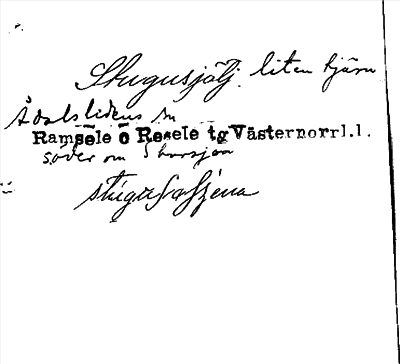 Stugusjölj. liten tjärn
Ådalslidens sn
Ramsele o Resele tg Västernorrl.l.
söder om Storsjön